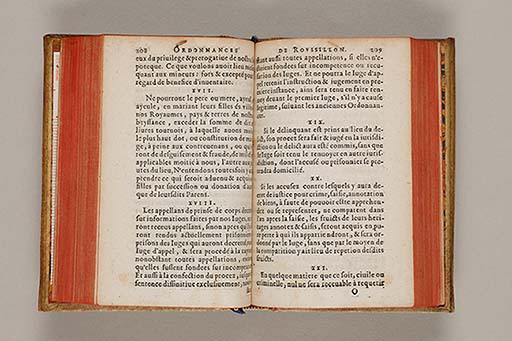 208 ORDONNANCES
eux du privilege & prerogatiue de nostre
poteque. Ce que voulons auoir lieu
quant aux mineurs: fors & excepté pour
regard de benefice d'inuentaire.
XVII.
Ne pourront le pere ou mere, ayeul
ayeule, en mariant leurs filles és villes
nos Royaumes, pays & terres de nostre
obeyssance, exceder la somme de dix mil
liures tournois, à laquelle auons
le plus haut dot, ou constitution de
ge, à peine aux contreuenans, ou qui
ront de desguisement & fraude, de mil
applicables moitié à nous, l'autre aux
ures du lieu, N'entendons toutesfois y
prendre ce qui seroit aduenu & acquis
filles par succession ou donation d'au
que de leursdits Parens.
XVIII.
Les appellans de prinse de corps
sur informations faites par nos Iuges, ne
ront receus appellans, sinon apres qu'ils
ront rendus actuellement prisonniers
prisons des Iuges qui auront decreté,
Iuge d'appel, & sera procedé à la
nonobstant toutes appellations,
qu'elles fussent fondees sur incompetence
Et aussi à la confection du procez, iusques
sentence diffinitiue exclusiuement,
DE ROVSILLON. 209
stant aussi toutes appellations, si elles n'e-
stoient fondees sur incompetence ou recu-
sation des Iuges. Et ne pourra le Iuge d'ap-
pel retenir l'instruction & iugement en pre-
miere instance, ains sera tenu en faire ren-
uoy deuant le premier Iuge, s'il n'y a cause
legitime, suiuant les anciennes Ordonnan-
ces.
XIX.
Si le delinquant est prins au lieu du de-
lict, son procez sera fait & iugé en la iurisdi-
ction ou le delict aura esté commis, sans que
le Iuge soit tenu le renuoyer en autre iuris-
diction, dont l'accusé ou prisonnier se pre-
tendra domicilié.
XX.
Si les accusez contre lesquels y aura de-
cret de iustice pour crime, saisie, annotation
de biens, à faute de pouuoir estre apprehen-
dez ou se representer, ne comparent dans
l'an apres la saisie, les fruicts de leurs heri-
tages annotez & saisis, seront acquis en pu-
re perte à qui ils appartiendront, & sera or-
donné par le Iuge, sans que par le moyen de
la comparution y ait lieu de repetion desdits
fruicts.
XXI.
En quelque matiere que ce soit, ciuile ou
criminelle, nul ne sera receuable à requerir
O